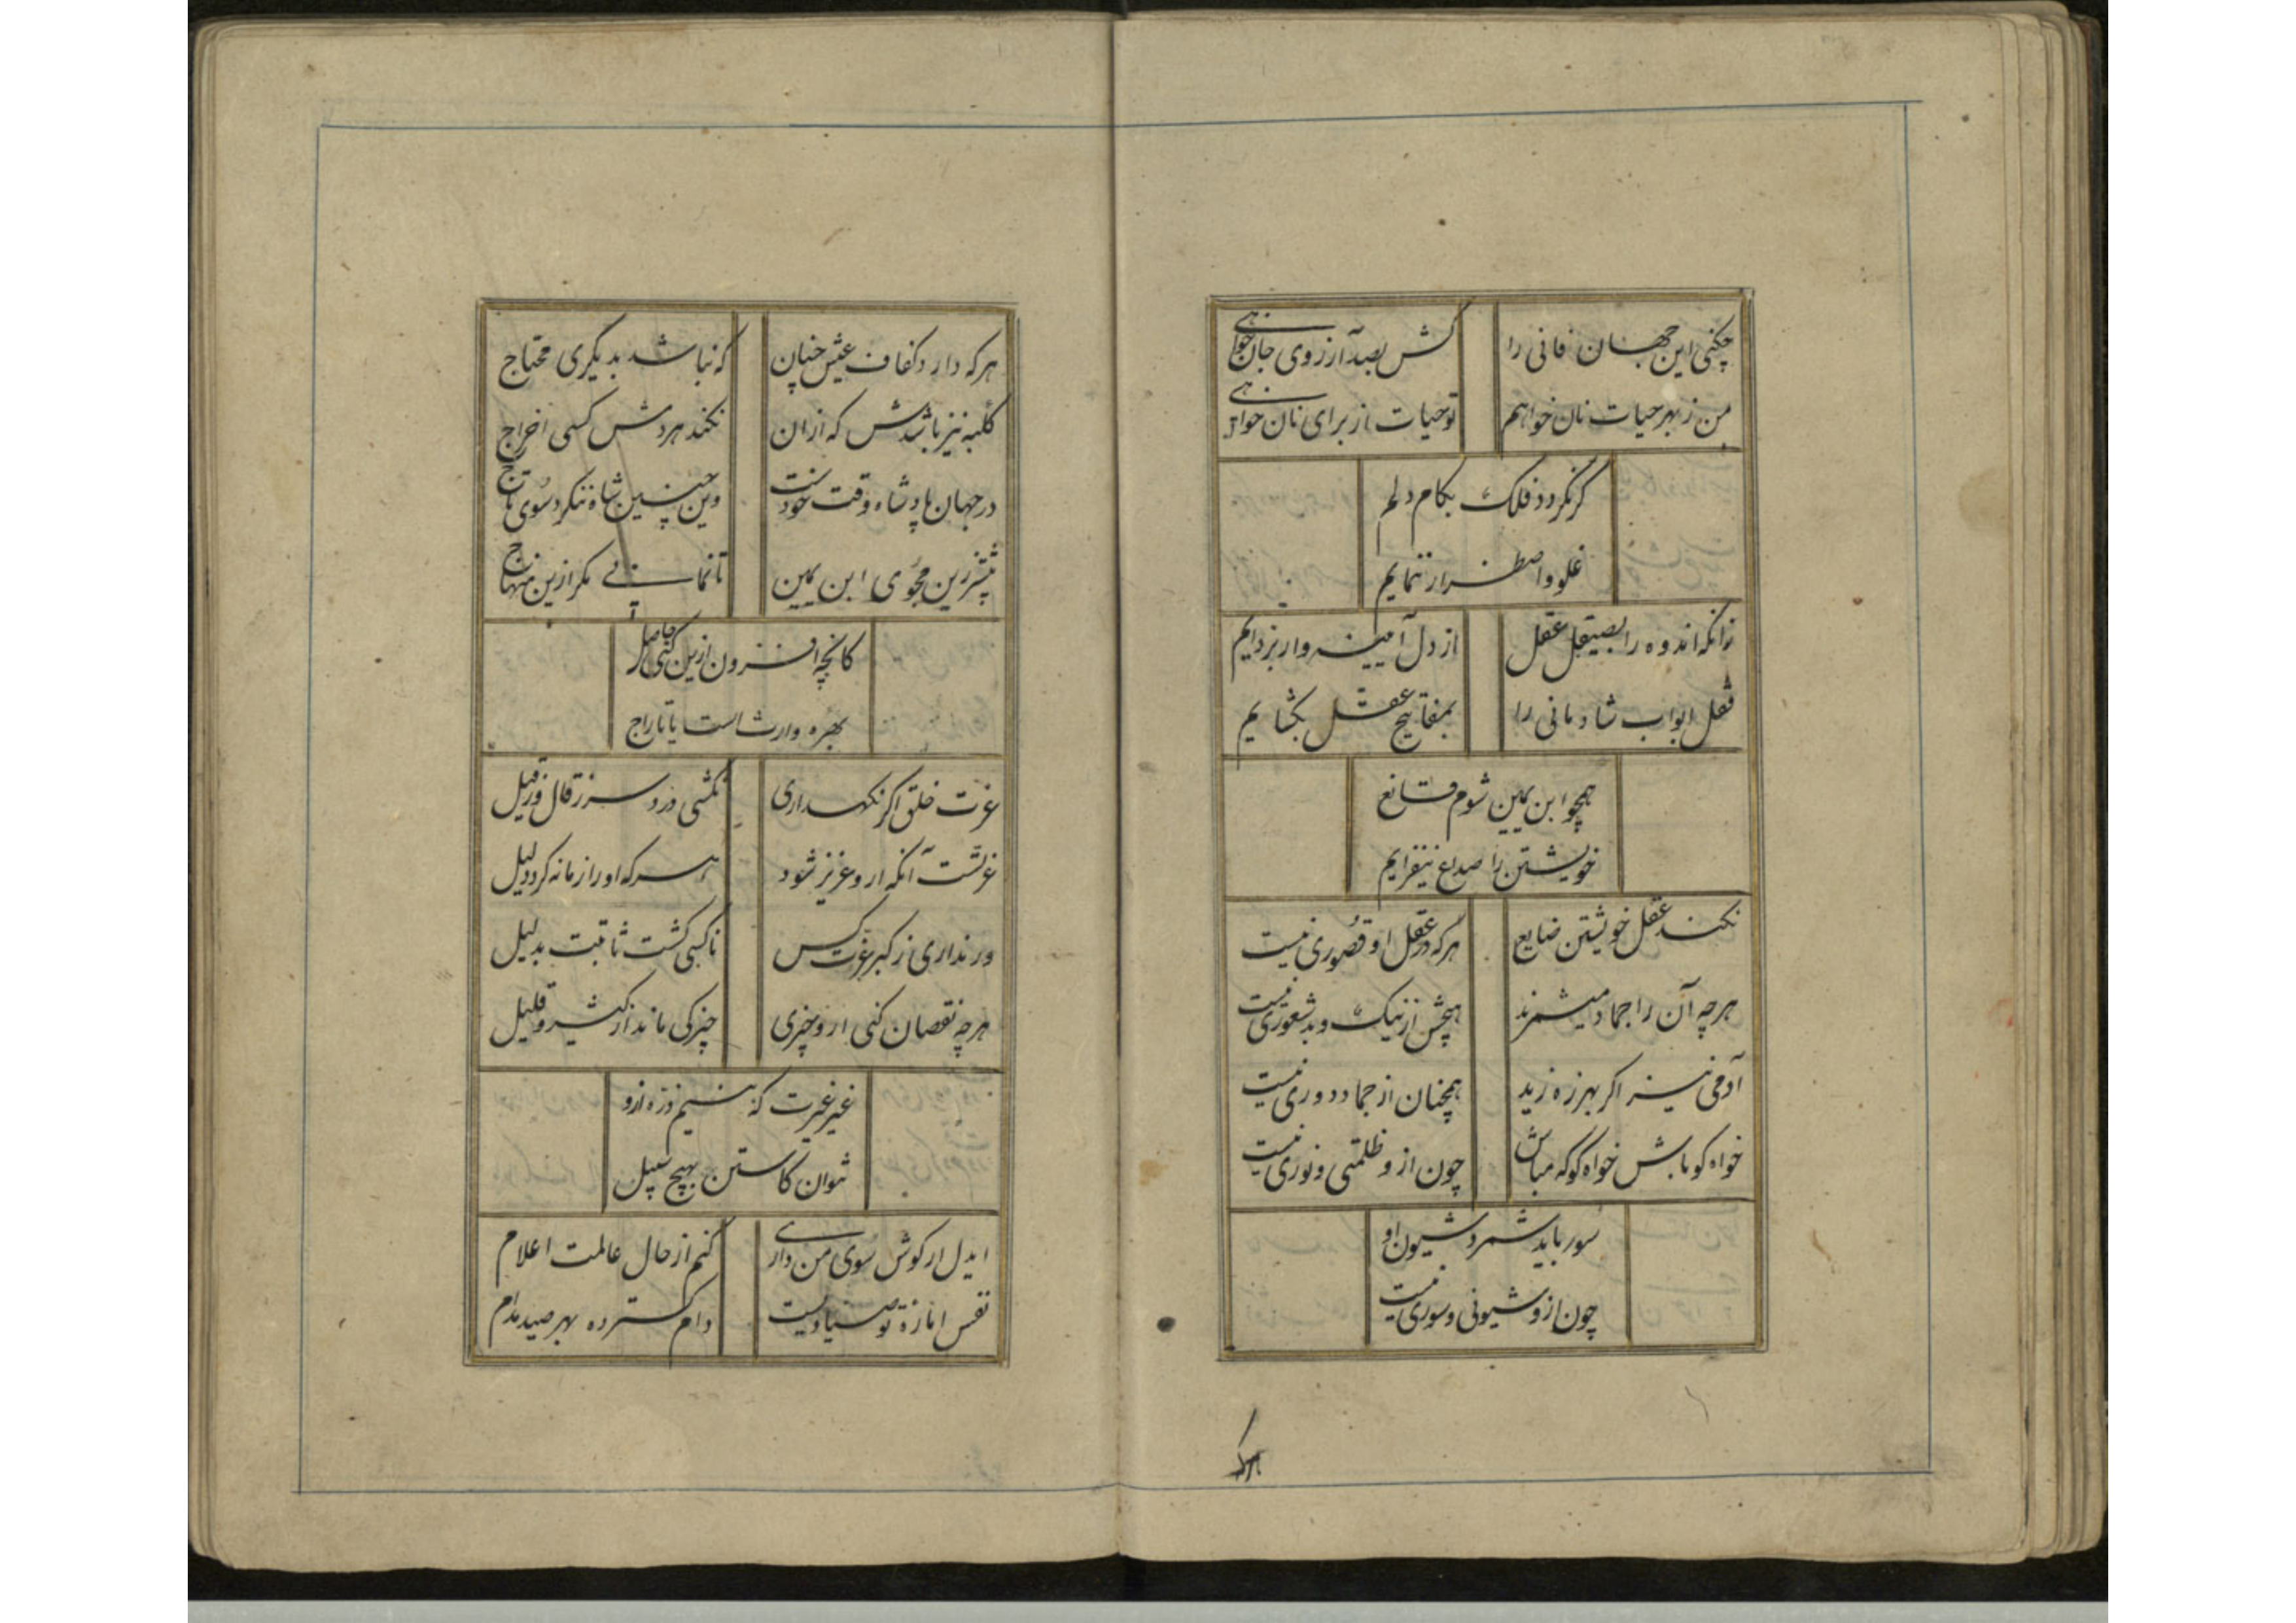 چکنی این جهان فانی را
کش بصد آرزوی جان خواهی
من ز بهر حیات نان خواهم
تو حیات از برای نان خواهی
گر نگردد فلک بکام دلم
غلو و اضطرار ننمایم
زانکه اندوه را بصیقل عقل
از دل آیینه وار بزدایم
قفل ابواب شادمانی را
بمفاتیح عقل بکشایم
همچو ابن یمین شوم قانع
خویشتن را صداع نفزایم
نکند عقل خویشتن ضایع
هر که در عقل او قصوری نیست
هر چه آن را جماد میشمرند
هیچش از نیک و بد شعوری نیست
آدمی نیز اگر بهرزه زید
همچنان از جماد دوری نیست
خواه کو باش خواه کو که مباش
چون ازو ظلمتی و نوری نیست
سور باید شمرد شیون او
چون ازو شیونی و سوری نیست
هر که
هر که دارد کفاف عیش چنان
که نباشد بدیگری محتاج
کلبه نیز باشدش که ازان
نکند هر دمش کسی اخراج
در جهان پادشاه وقت خودست
وین چنین شاه ننکرد سوی تاج
بیشتر زین مجوی ابن یمین
تا نمانی مکر ازین منهاج
کانچه افزون ازین کنی حاصل
بهره وارث است یا تاراج
عزت خلق اکر نکهداری
نکشی درد سر ز قال و ز قیل
عزتست آنکه ازو عزیز شود
هر که او را زمانه کرد ذلیل
ور نداری ز کبر عزت کس
ناکسی کشت ثابتت بدلیل
هر چه نقصان کنی ازو چیزی
چیزکی ماند از کثیر و قلیل
غیر غیرت که نیم ذره ازو
نتوان کاستن بهیچ سبیل
ایدل ار کوش سوی من داری
کنم از حال عالمت اعلام
نفس اماره تو صیادیست
دام کسترده بهر صید مدام